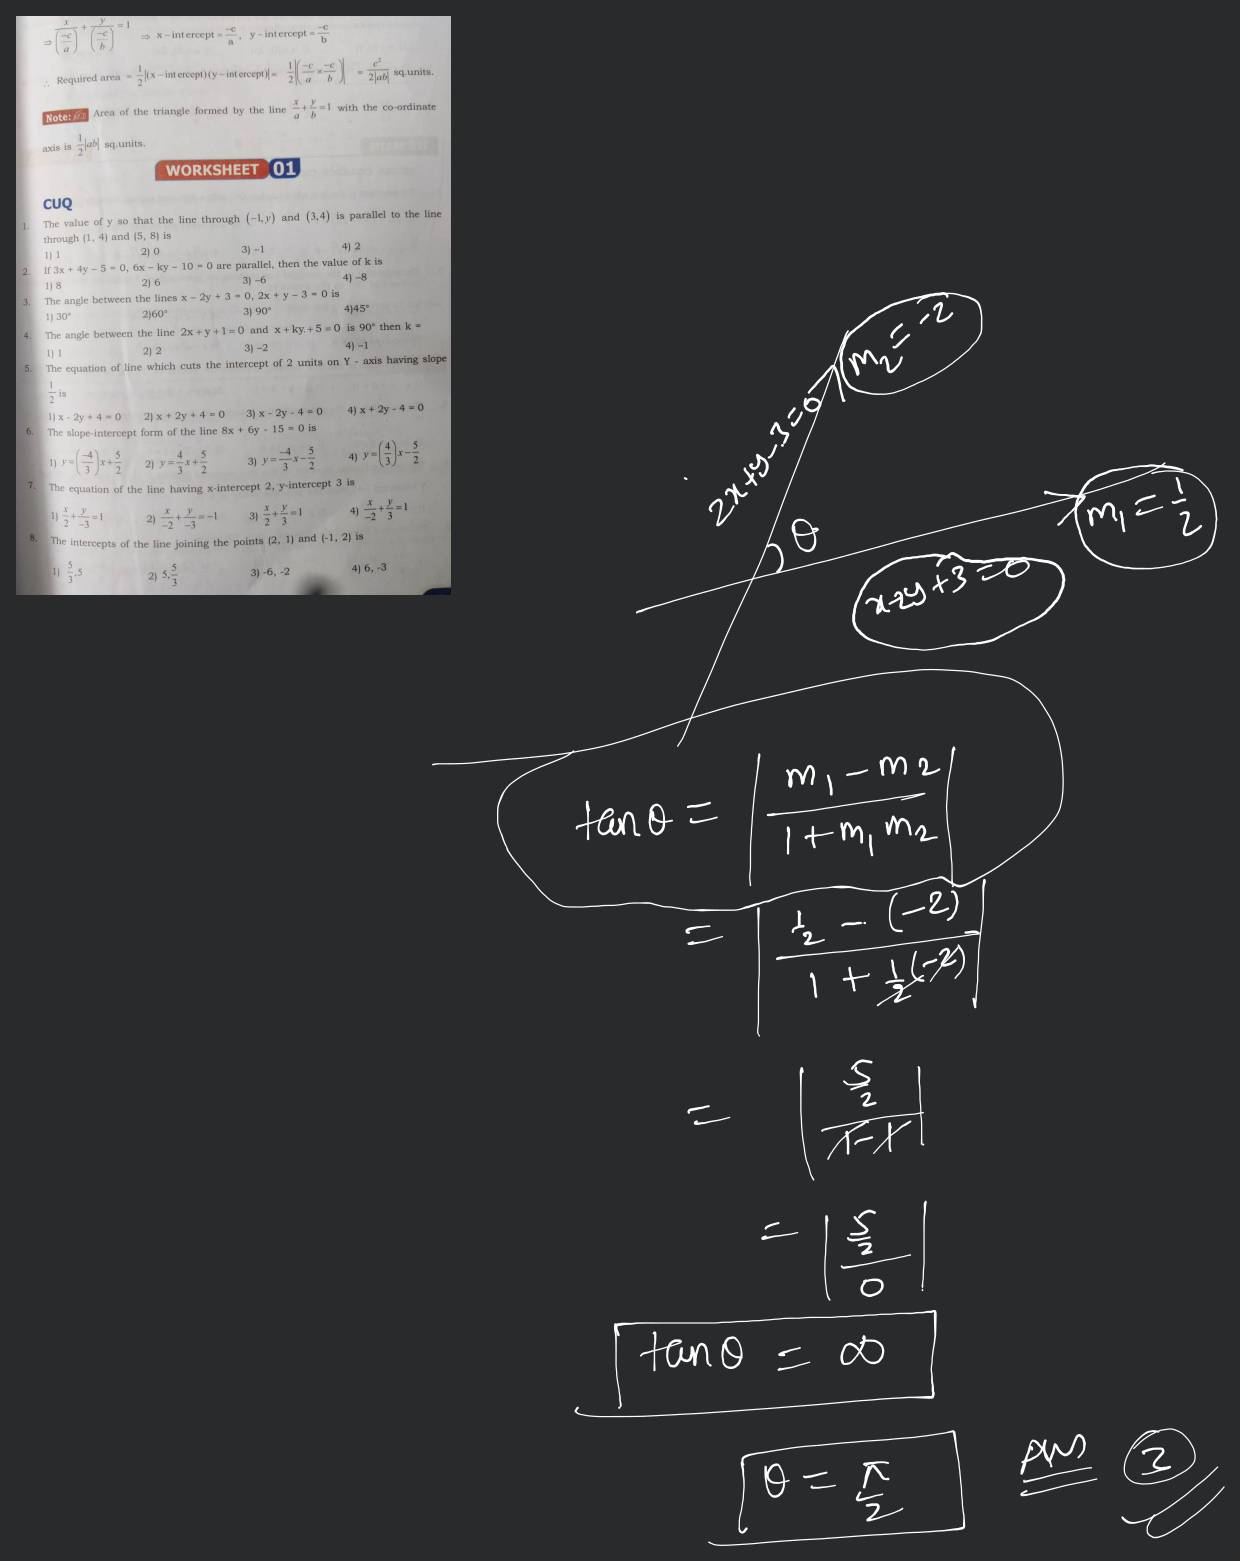 ⇒ x/(-c/a) + y/(-c/b) = 1 ⇒ x-intercept = -c/a, y-intercept = -c/b
∴ Required area = 1/2|(x-int ercept)(y-int ercept)| = 1/2|(-c/a × -c/b)| = c²/2|ab| sq.units.
Note: Area of the triangle formed by the line x/a + y/b = 1 with the co-ordinate
axis is 1/2|ab| sq.units.
WORKSHEET 01
CUQ
1. The value of y so that the line through (-1,y) and (3,4) is parallel to the line
through (1, 4) and (5, 8) is
1) 1 2) 0 3) -1 4) 2
2. If 3x + 4y - 5 = 0, 6x - ky - 10 = 0 are parallel, then the value of k is
1) 8 2) 6 3) -6 4) -8
3. The angle between the lines x - 2y + 3 = 0, 2x + y - 3 = 0 is
1) 30° 2)60° 3) 90° 4)45°
4. The angle between the line 2x+y+1=0 and x+ky.+5=0 is 90° then k =
1) 1 2) 2 3) -2 4) -1
5. The equation of line which cuts the intercept of 2 units on Y - axis having slope
1/2 is
1) x - 2y + 4 = 0 2) x + 2y + 4 = 0 3) x - 2y - 4 = 0 4) x + 2y - 4 = 0
6. The slope-intercept form of the line 8x + 6y - 15 = 0 is
1) y=(-4/3)x+5/2 2) y=4/3x+5/2 3) y=-4/3x-5/2 4) y=(4/3)x-5/2
7. The equation of the line having x-intercept 2, y-intercept 3 is
1) x/2+y/-3=1 2) x/-2+y/-3=-1 3) x/2+y/3=1 4) x/-2+y/3=1
8. The intercepts of the line joining the points (2, 1) and (-1, 2) is
1) 5/3,5 2) 5,5/3 3) -6, -2 4) 6, -3
m₂ = -2
2x+y-3=0
m₁ = 1/2
θ
x-2y+3=0
tanθ = |(m₁ - m₂)/(1 + m₁ m₂)|
= |(1/2 - (-2))/(1 + 1/2(-2))|
= |(5/2)/(1-1)|
= |(5/2)/0|
tanθ = ∞
θ = π/2 Ans 3